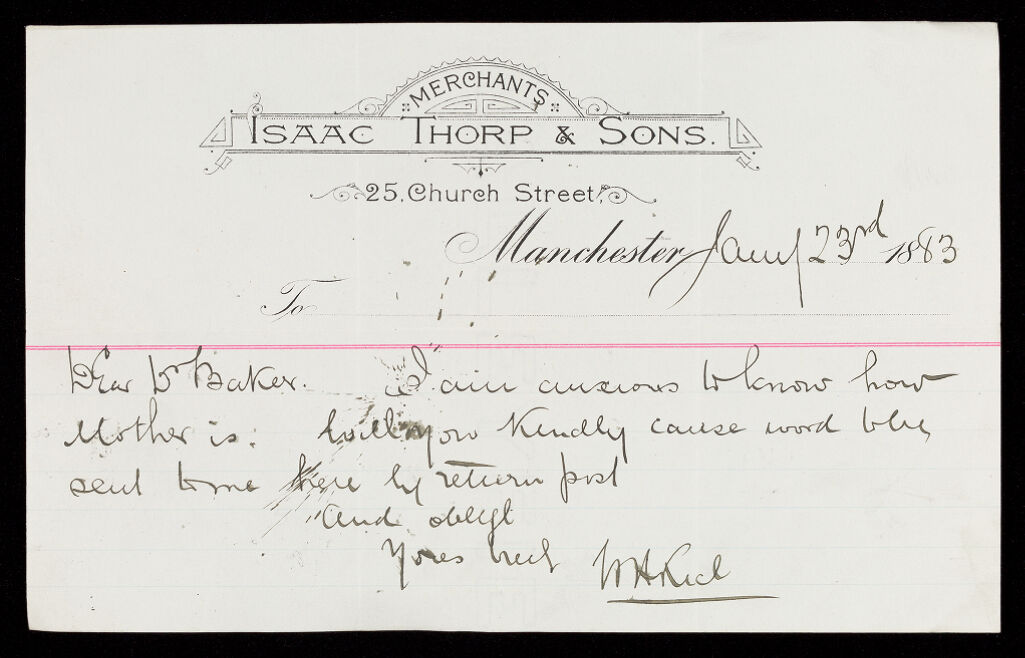 MERCHANTS
ISAAC THORP & SONS.
25, Church Street,
Manchester Jany 23rd 1883
To
Dear Dr Baker. I am anxious to know how
Mother is: Will you kindly cause word to be
sent to me here by return post
and oblige
Yours